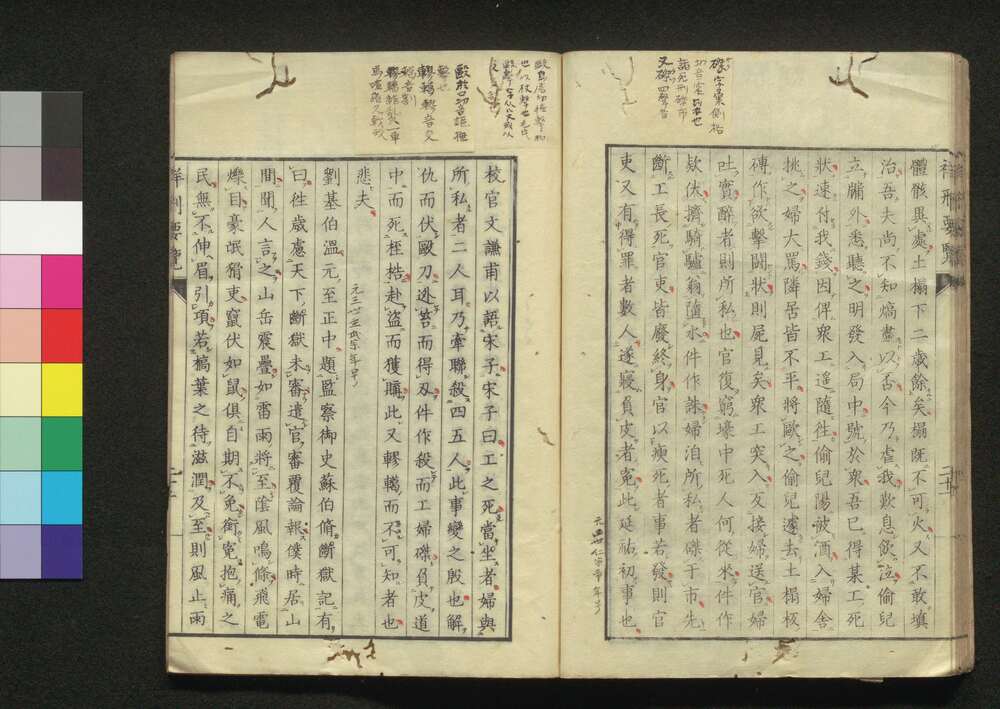 體骸異處土榻下二歲餘矣榻既不可火又不敢填
治吾夫尚不知熇盡以否今乃虐我歎息飲泣偷兒
立牖外悉聽之明發入局中號於衆吾已得某工死
狀速付我錢因俾衆工遥隨往偷兒陽被酒入婦舍
挑之婦大罵隣居皆不平將歐之偷兒遽去土榻板
磚作欲擊鬪狀則屍見矣衆工突入反接婦送官婦
吐實醉者則所私也官復窮壕中死人何從來仵作
欵伏擠騎驢翁墮水仵作誅婦洎所私者磔于市先
斷工長死官吏皆廢終身官以瘐死者事若發則官
吏又有得罪者數人遂寢負皮者冤此延祐初事也
校官文謙甫以語宋子宋子曰工之死當坐者婦與
所私者二人耳乃牽聯殺四五人此事變之殷也解
仇而伏歐刀逃笞而得刃仵作殺而工婦磔負皮道
中而死桎梏赴盜而獲購此又轇轕而不可知者也
悲夫
劉基伯溫元至正中題監察御史蘇伯脩斷獄記有
曰徃歲慮天下斷獄未審遣官審覆論報僕時居山
間聞人言之山岳震疊如雷雨將至陰風鳴條飛電
爍目豪氓猾吏竄伏如鼠俱自期不免銜冤抱痛之
民無不伸眉引項若槁葉之待滋潤及至則風止雨